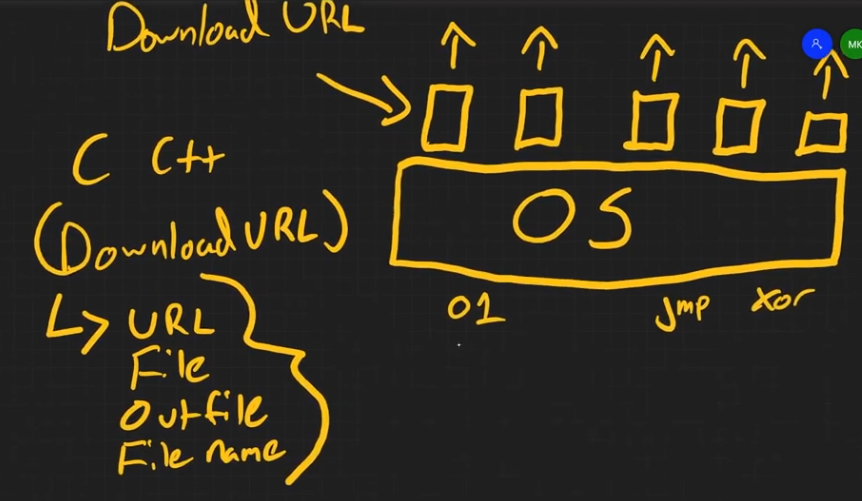 Download URL
MK
C C++
(Download URL)
OS
↳ URL
File
Outfile
File name
01 jmp xor